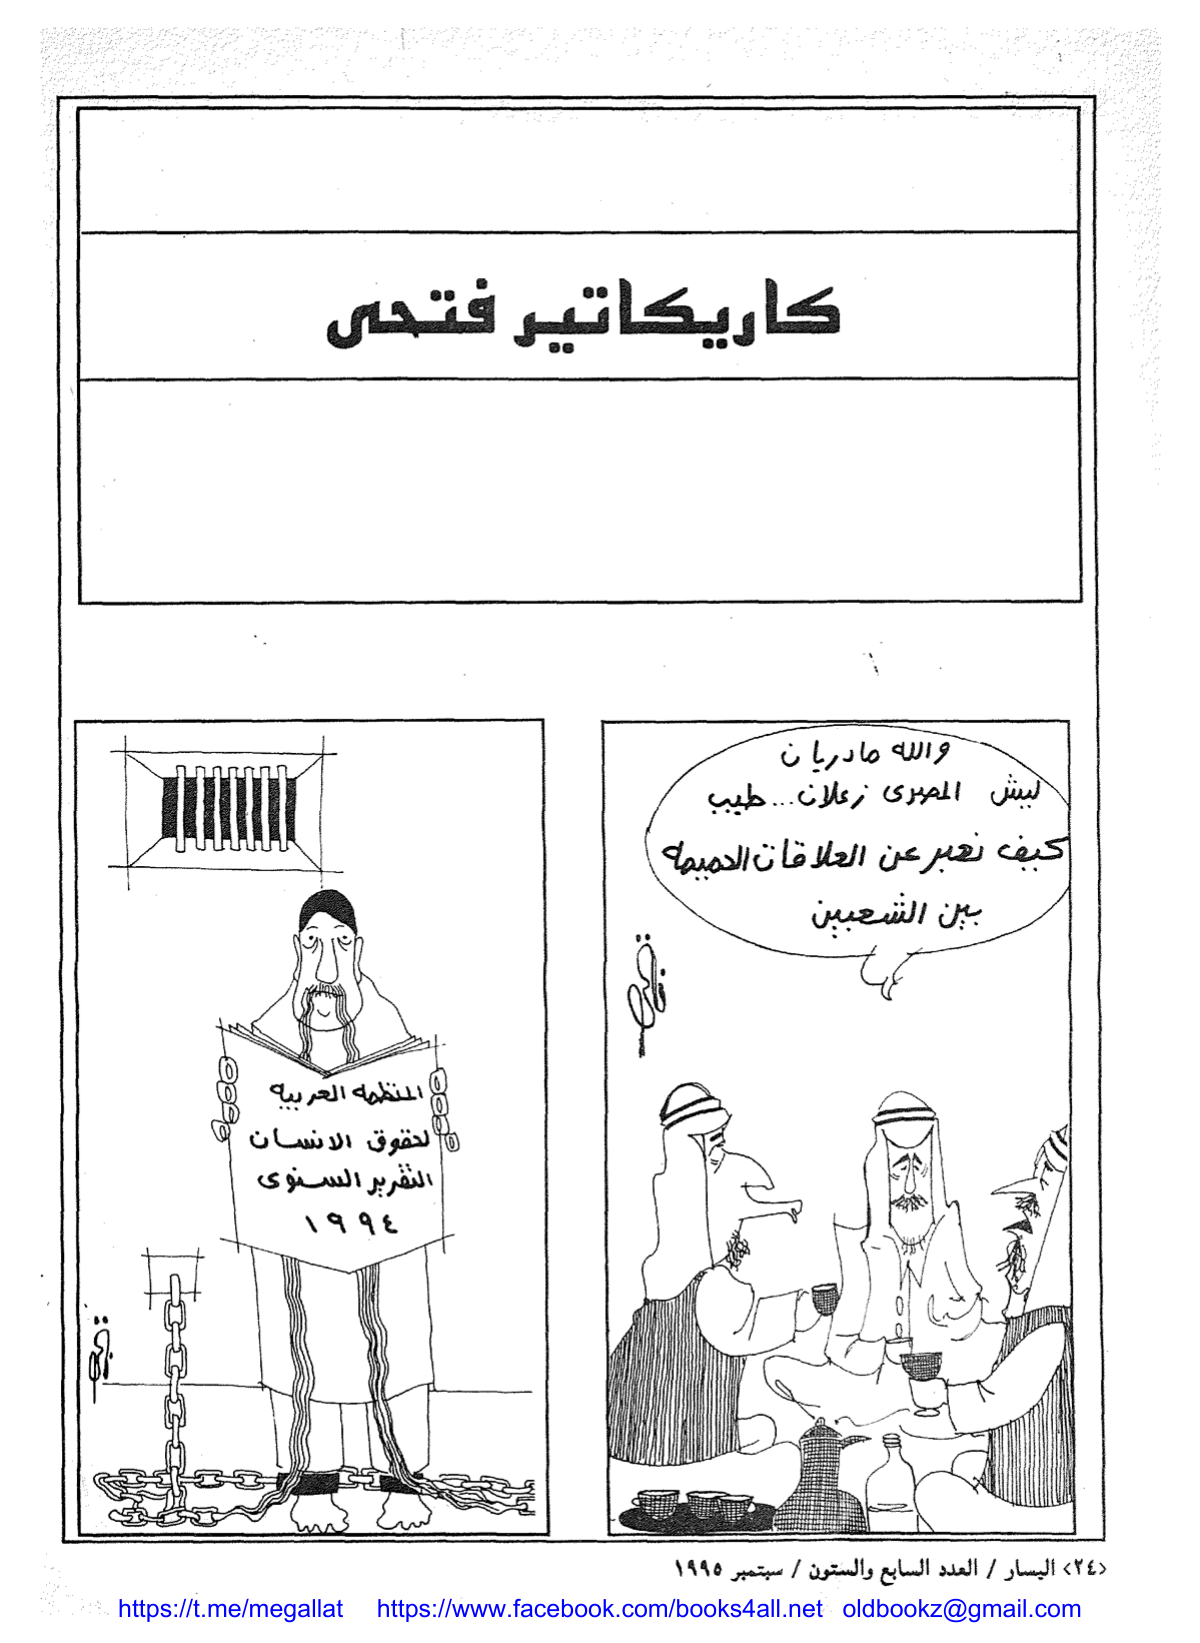 كاريكاتير فتحى
والله مادريان
ليش المصرى زعلان... طيب
كيف نعبر عن العلاقات الحميمه
بين الشعبين
فتحى
المنظمه العربيه
لحقوق الانسان
التقرير السنوى
١٩٩٤
فتحى
<٢٤> اليسار / العدد السابع والستون / سبتمبر ١٩٩٥
https://t.me/megallat https://www.facebook.com/books4all.net oldbookz@gmail.com